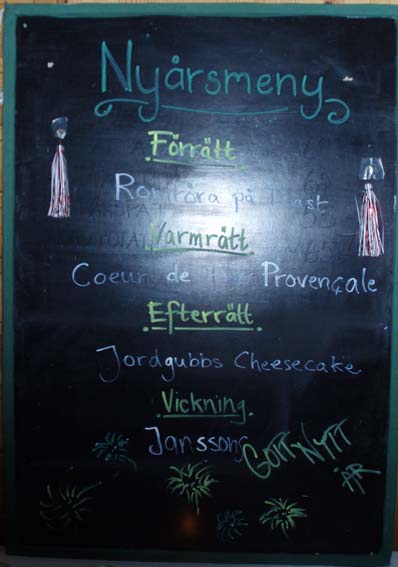 Nyårsmeny
Förrätt
Romröra på Toast
Varmrätt
Coeur de Provençale
Efterrätt
Jordgubbs Cheesecake
Vickning
Janssons
GOTT NYTT
ÅR